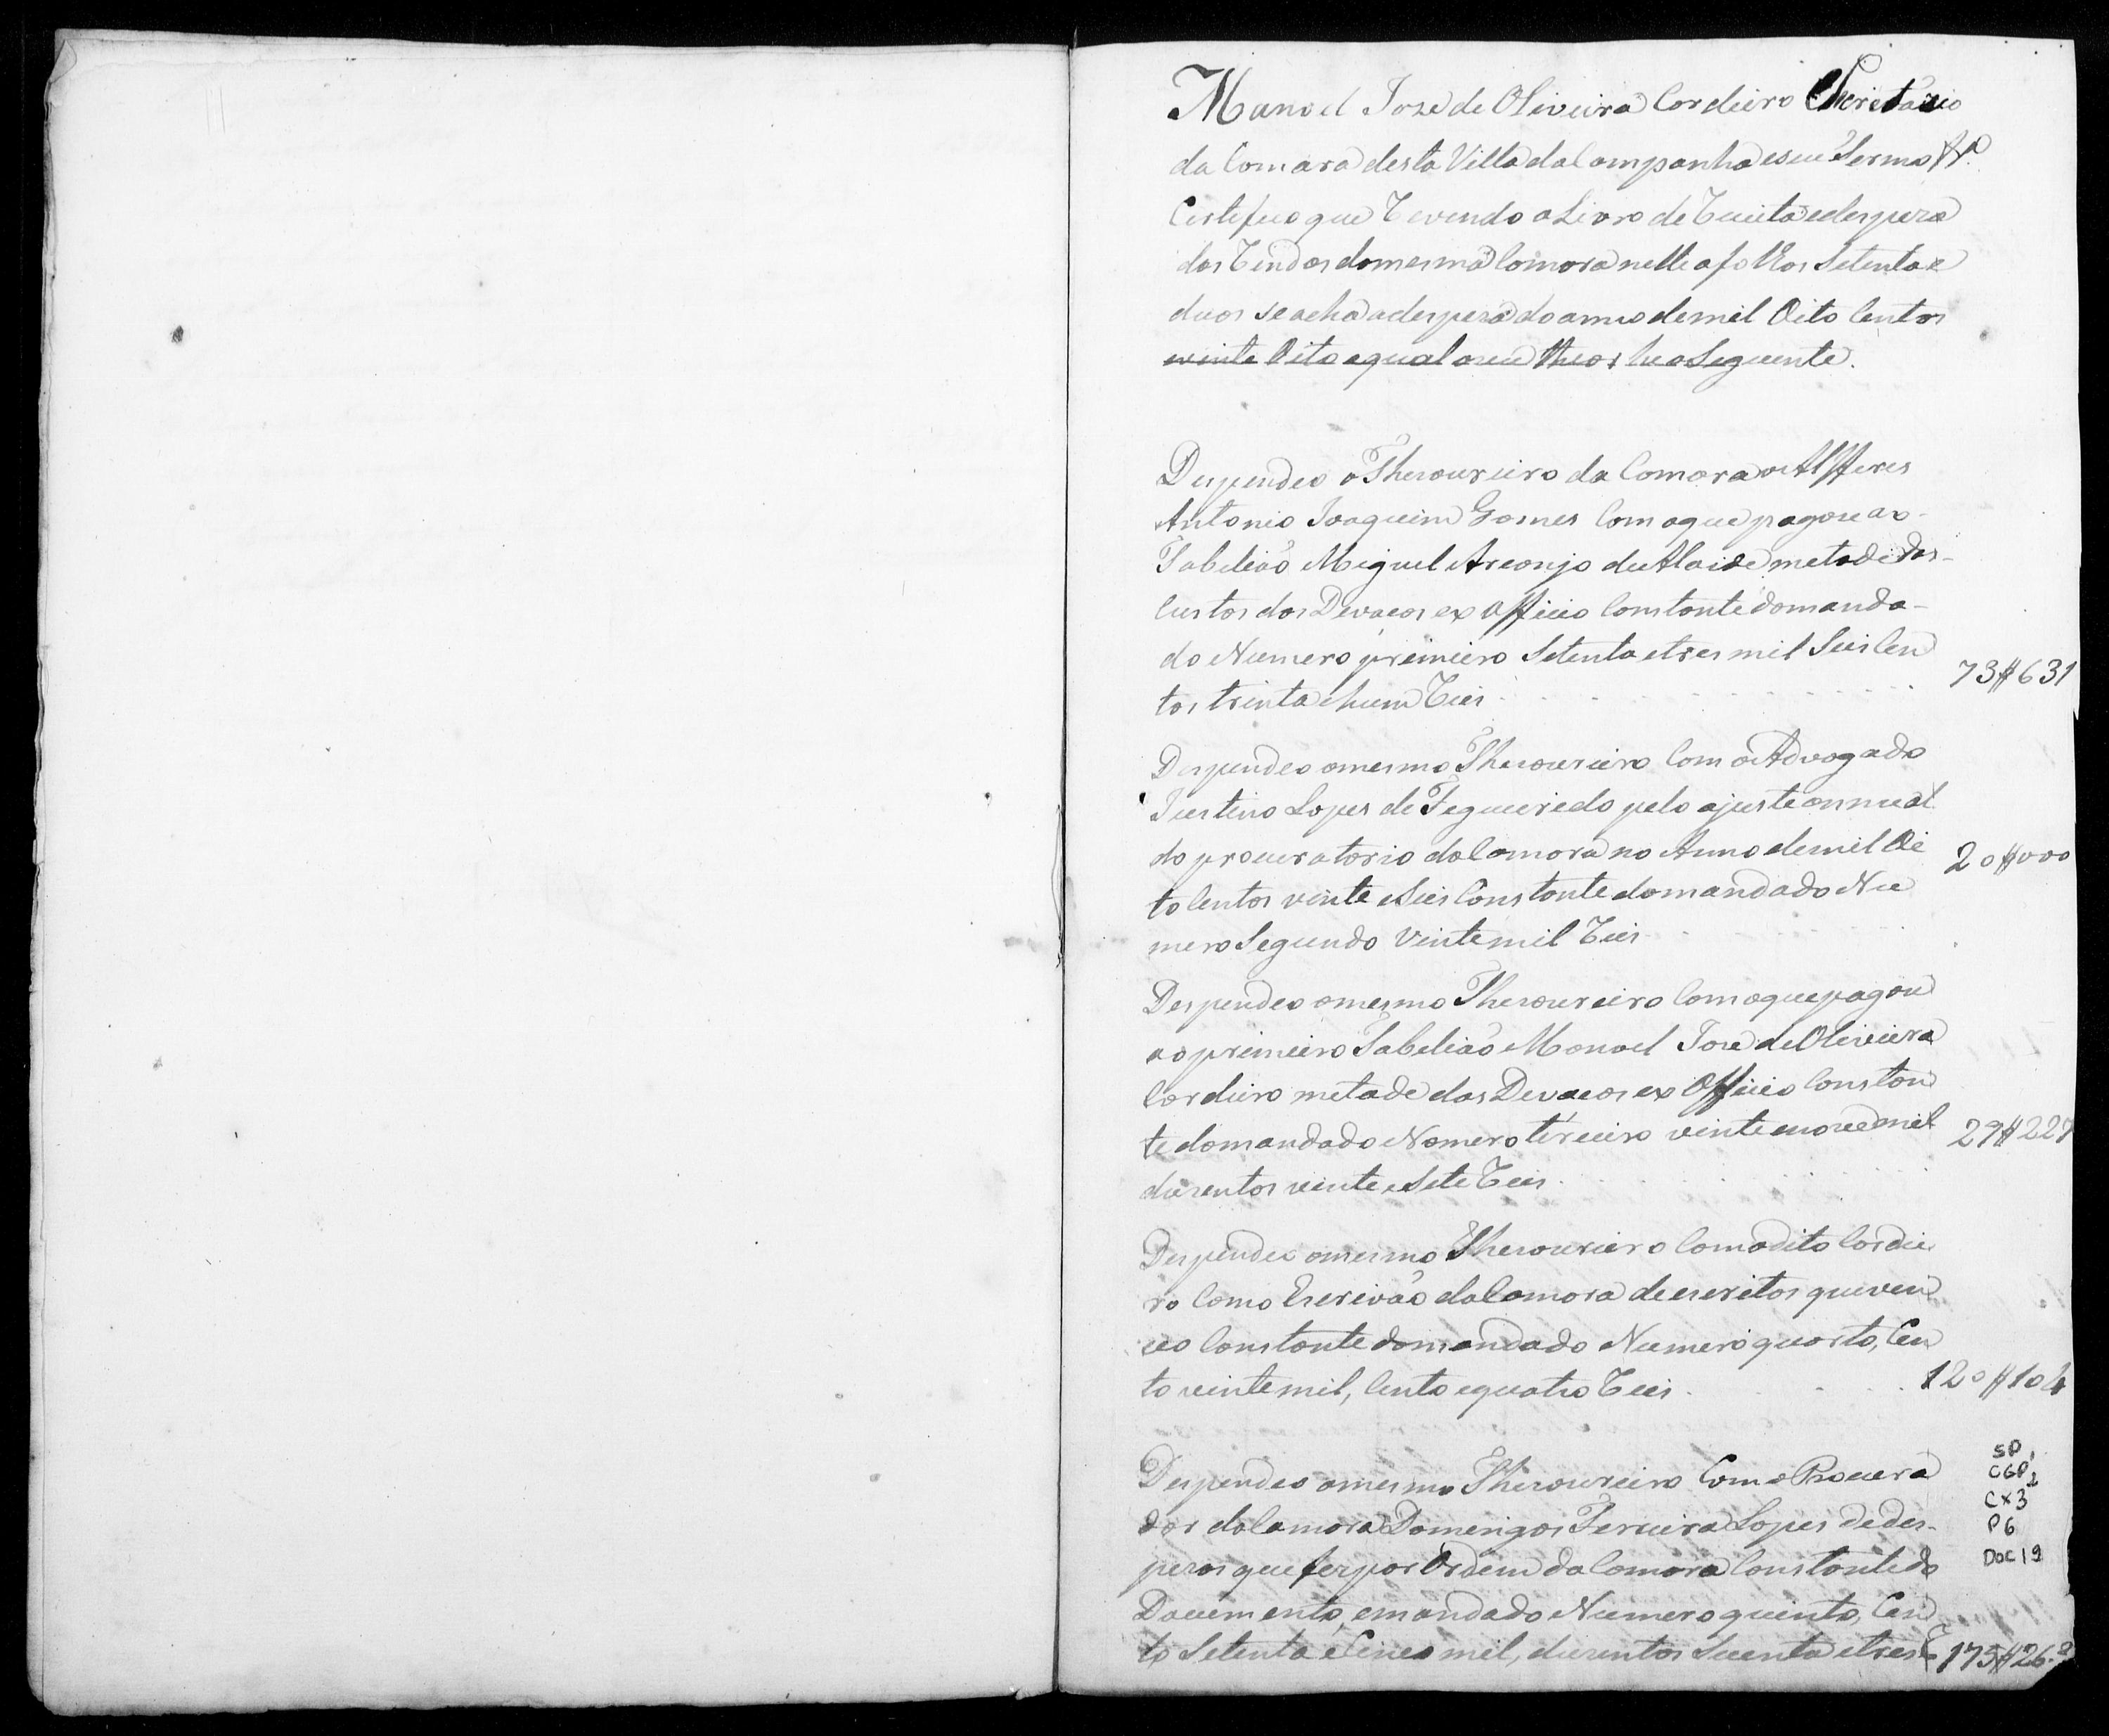 Manoel Joze de Oliveira Cordeiro Secretario
da Camara desta Villa da Campanha e seu Termo &ª.
Certefico que revendo o Livro de receita e despeza
das rendas da mesma Camara nelle a folhas Setenta e
duas se acha a despeza do anno de mil Oito Centos
vinte Oito a qual o seu theor he o Seguente.
Despendeo o Thezoureiro da Camara o Alfferes
Antonio Joaquim Gomes Com o que pagou ao
Tabelião Miguel Arcanjo de Ataide metade das
Custas das Devaças ex Officio Constante do manda-
do Numero primeiro Setenta e tres mil Seis Cen
tos trinta e hum reis 73$631
Despendeo o mesmo Thezoureiro Com o Advogado
Justino Lopes de Fegueiredo pelo ajuste annual
do procuratorio da Camara no Anno de mil Oi
to Centos vinte e Seis Constante do mandado Nu
mero Segundo Vinte mil reis 20$000
Despendeo o mesmo Thezoureiro Com o que pagou
ao primeiro Tabelião Manoel Joze de Oliveira
Cordeiro metade das Devaças ex Officio Constan
te do mandado Nomero terceiro vinte e nove mil
duzentos vinte e Sete reis 29$227
Despendeo o mesmo Thezoureiro Com o dito Cordei
ro Como Escrivão da Camara de escritos que ven
ceo Constante do mandado Numero quarto, Cen
to vinte mil, Cento e quatro reis 120$104
Despendeo o mesmo Thezoureiro Com o Procura
dor da Camara Domingos Ferreira Lopes de des-
pezas que fez por Ordem da Camara Constante do
Documento, e mandado Numero quinto, Cen
to Setenta e Cinco mil, duzentos Secenta e tres r 175$263
SP
CGP 1
2
CX3
P6
DOC 19